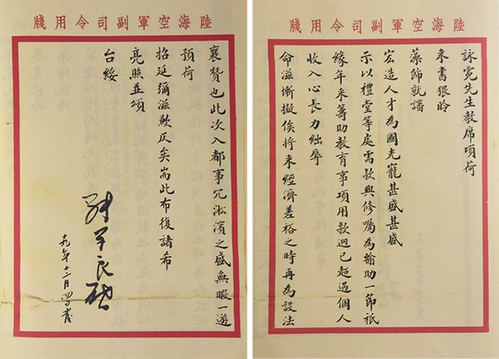 陸海空軍副司令用牋
詠霓先生教席頃荷
來書猥盼
藻飾就諗
宏造人才為國光寵甚盛甚感
示以禮堂等處需款興修囑為輸助一節祇
緣年來籌助教育事項用款迥已超過個人
收入心長力絀辱
命滋慚擬俟將來經濟差裕之時再為設法
陸海空軍副司令用牋
襄贊也此次入都事冗淞濱之盛無暇一遊
預荷
招延彌滋歉仄矣耑此布復諸希
亮照並頌
台綏
張學良啟
十九年十二月四日